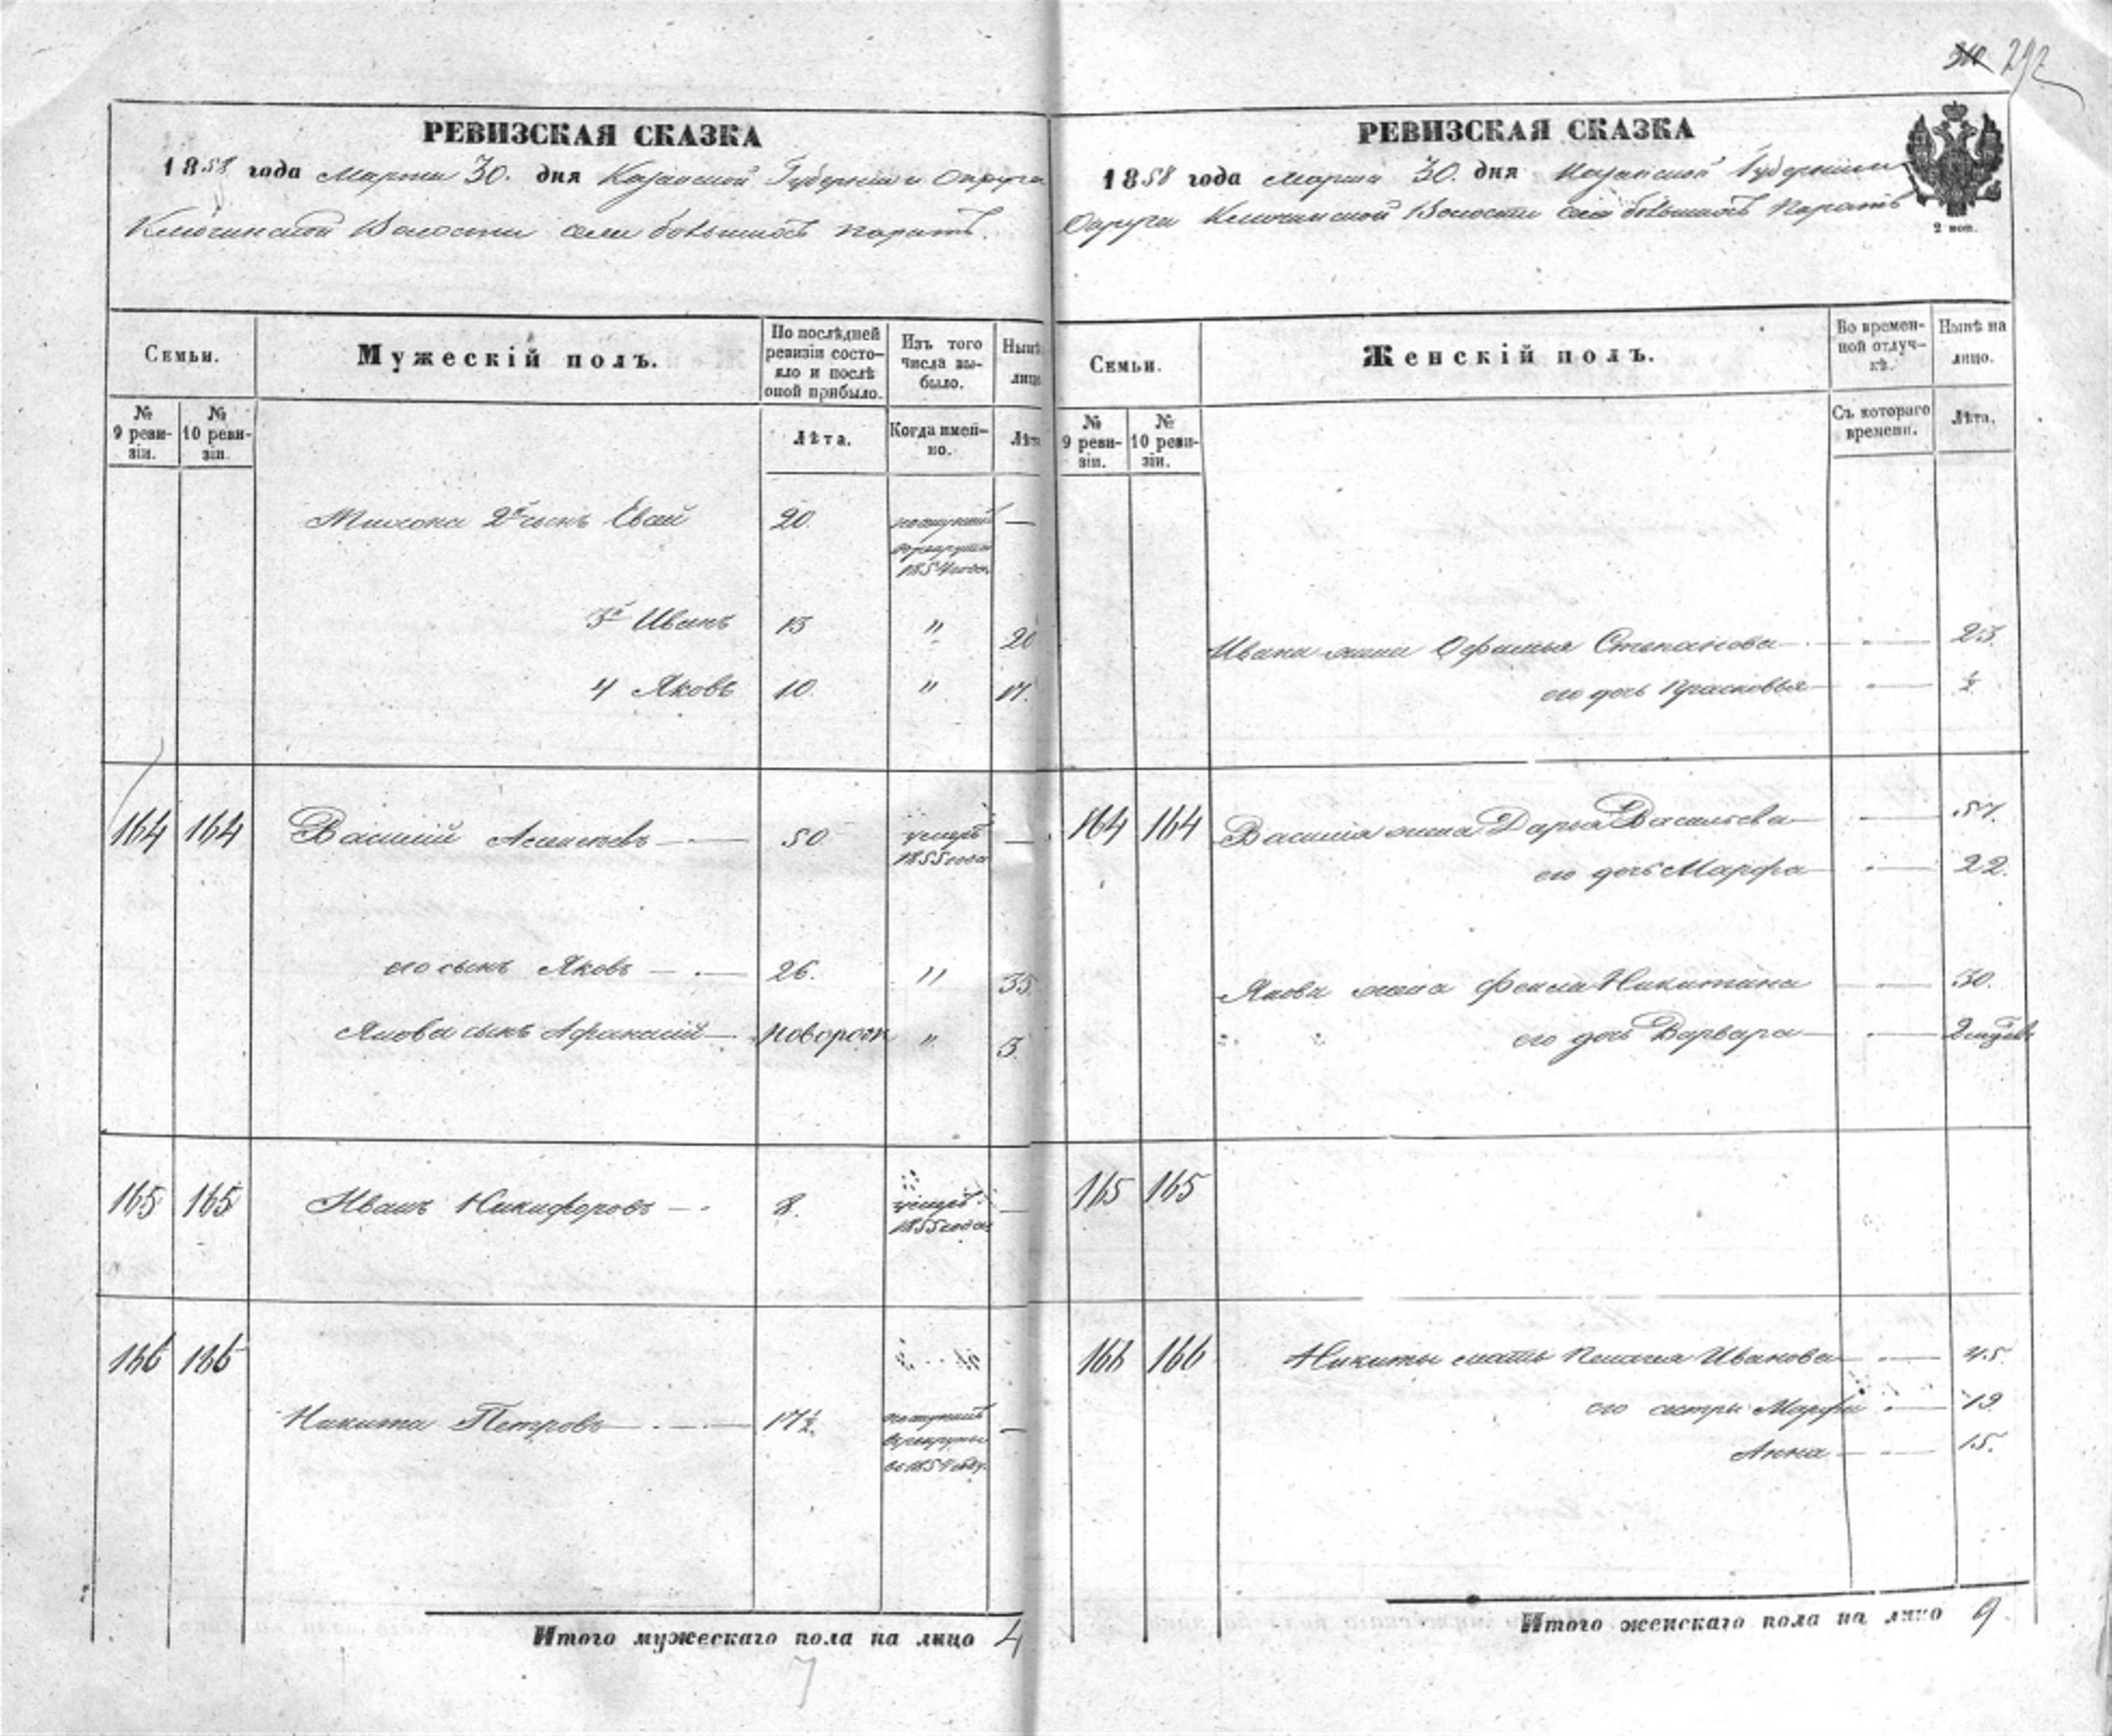 310 292
РЕВИЗСКАЯ СКАЗКА
1858 года Марта 30. дня Казанской Губернии и Округа
Ключинской Волости села большихъ Паратъ.
Семьи.
Мужескій полъ.
По послѣдней ревизіи состояло и послѣ оной прибыло.
Изъ того числа выбыло.
Нынѣ лицо
№ 9 ревизіи.
№ 10 ревизіи.
Лѣта.
Когда именно.
Лѣта
2й сынъ 20. поступилъ —
в рекруты
1854 года
3й Иванъ 13 " 20
4 Яковъ 10. " 17.
164 164 Василий 50 умеръ —
1855 года
его сынъ Яковъ — 26. " 35
Якова сынъ Афанасий — новорож " 3.
165 165 Иванъ Никифоровъ — 8. умеръ —
1855 года
166 166
Никита Петровъ — 17½. поступилъ —
в рекруты
в 1854 году.
Итого мужескаго пола на лицо 4
7
РЕВИЗСКАЯ СКАЗКА
1858 года Марта 30. дня Казанской Губернии
Округа Ключинской Волости села большихъ Паратъ
2 коп.
Семьи.
Женскій полъ.
Во временной отлучкѣ.
Нынѣ на лицо.
№ 9 ревизіи.
№ 10 ревизіи.
Съ котораго времени.
Лѣта.
Ивана жена Офимья Степанова — — 23.
его дочь Прасковья — — ½
164 164 Василия жена Дарья Васильева — — 57.
его дочь Марфа — — 22.
Якова жена Фекла Никитина — — 30.
" " его дочь Варвара — — 2
165 165
166 166 Никиты мать Пелагея Иванова — — 45.
его сестры Марфа — 19
Анна — — 15.
Итого женскаго пола на лицо 9